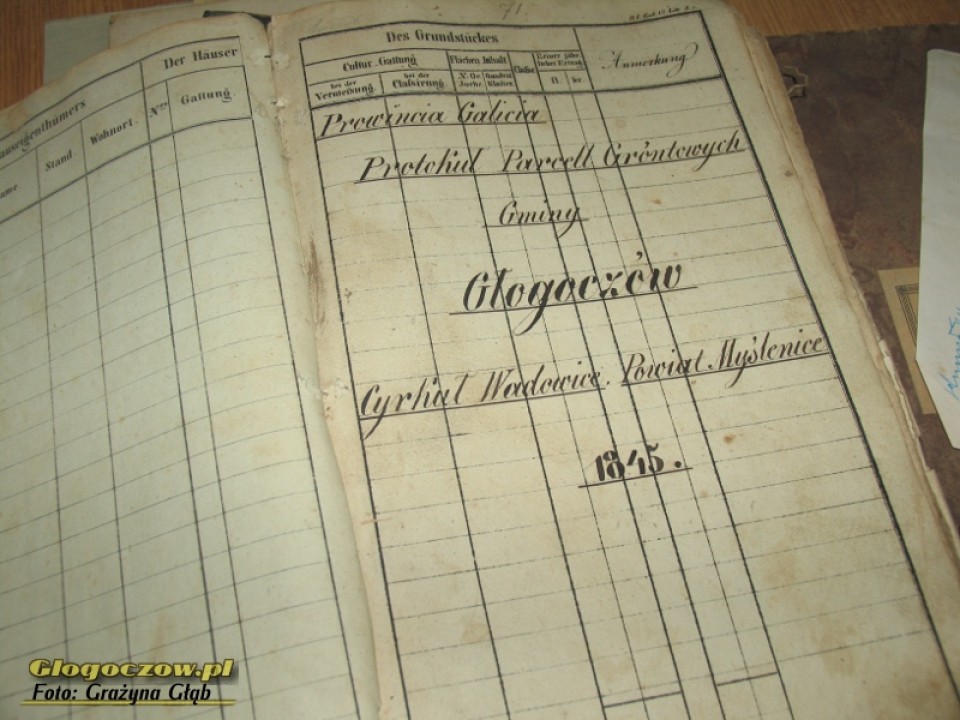 Hauseigenthumers
Der Häuser
Stand.
Wohnort.
Nro
Gattung.
71.
Des Grundstückes
Cultur-Gattung
Flächen-Inhalt
Classe
Anmerkung
bei der Vermessung.
bei der Classirung
N. Oe. Joche
Quadrat Klafter
fl.
kr
Prowincia Galicia
Protokuł Parcell Gróntowych
Gminy
Głogoczów
Cyrkuł Wadowice. Powiat Myślenice
1845.
Glogoczow.pl
Foto: Grażyna Głąb